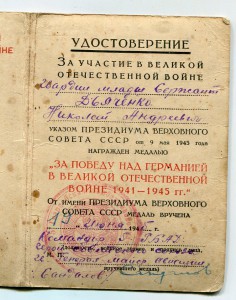 УДОСТОВЕРЕНИЕ
ЗА УЧАСТИЕ В ВЕЛИКОЙ
ОТЕЧЕСТВЕННОЙ ВОЙНЕ
Гвардии младш Сержант
Дьяченко
Николай Андреевич
УКАЗОМ ПРЕЗИДИУМА ВЕРХОВНОГО
СОВЕТА СССР по 9 мая 1945 года
НАГРАЖДЕН МЕДАЛЬЮ
„ЗА ПОБЕДУ НАД ГЕРМАНИЕЙ
В ВЕЛИКОЙ ОТЕЧЕСТВЕННОЙ
ВОЙНЕ 1941—1945 гг.“
От имени ПРЕЗИДИУМА ВЕРХОВНОГО
СОВЕТА СССР МЕДАЛЬ ВРУЧЕНА
19
Командир
М. П.
Генерал майор авиации
вручившего медаль)